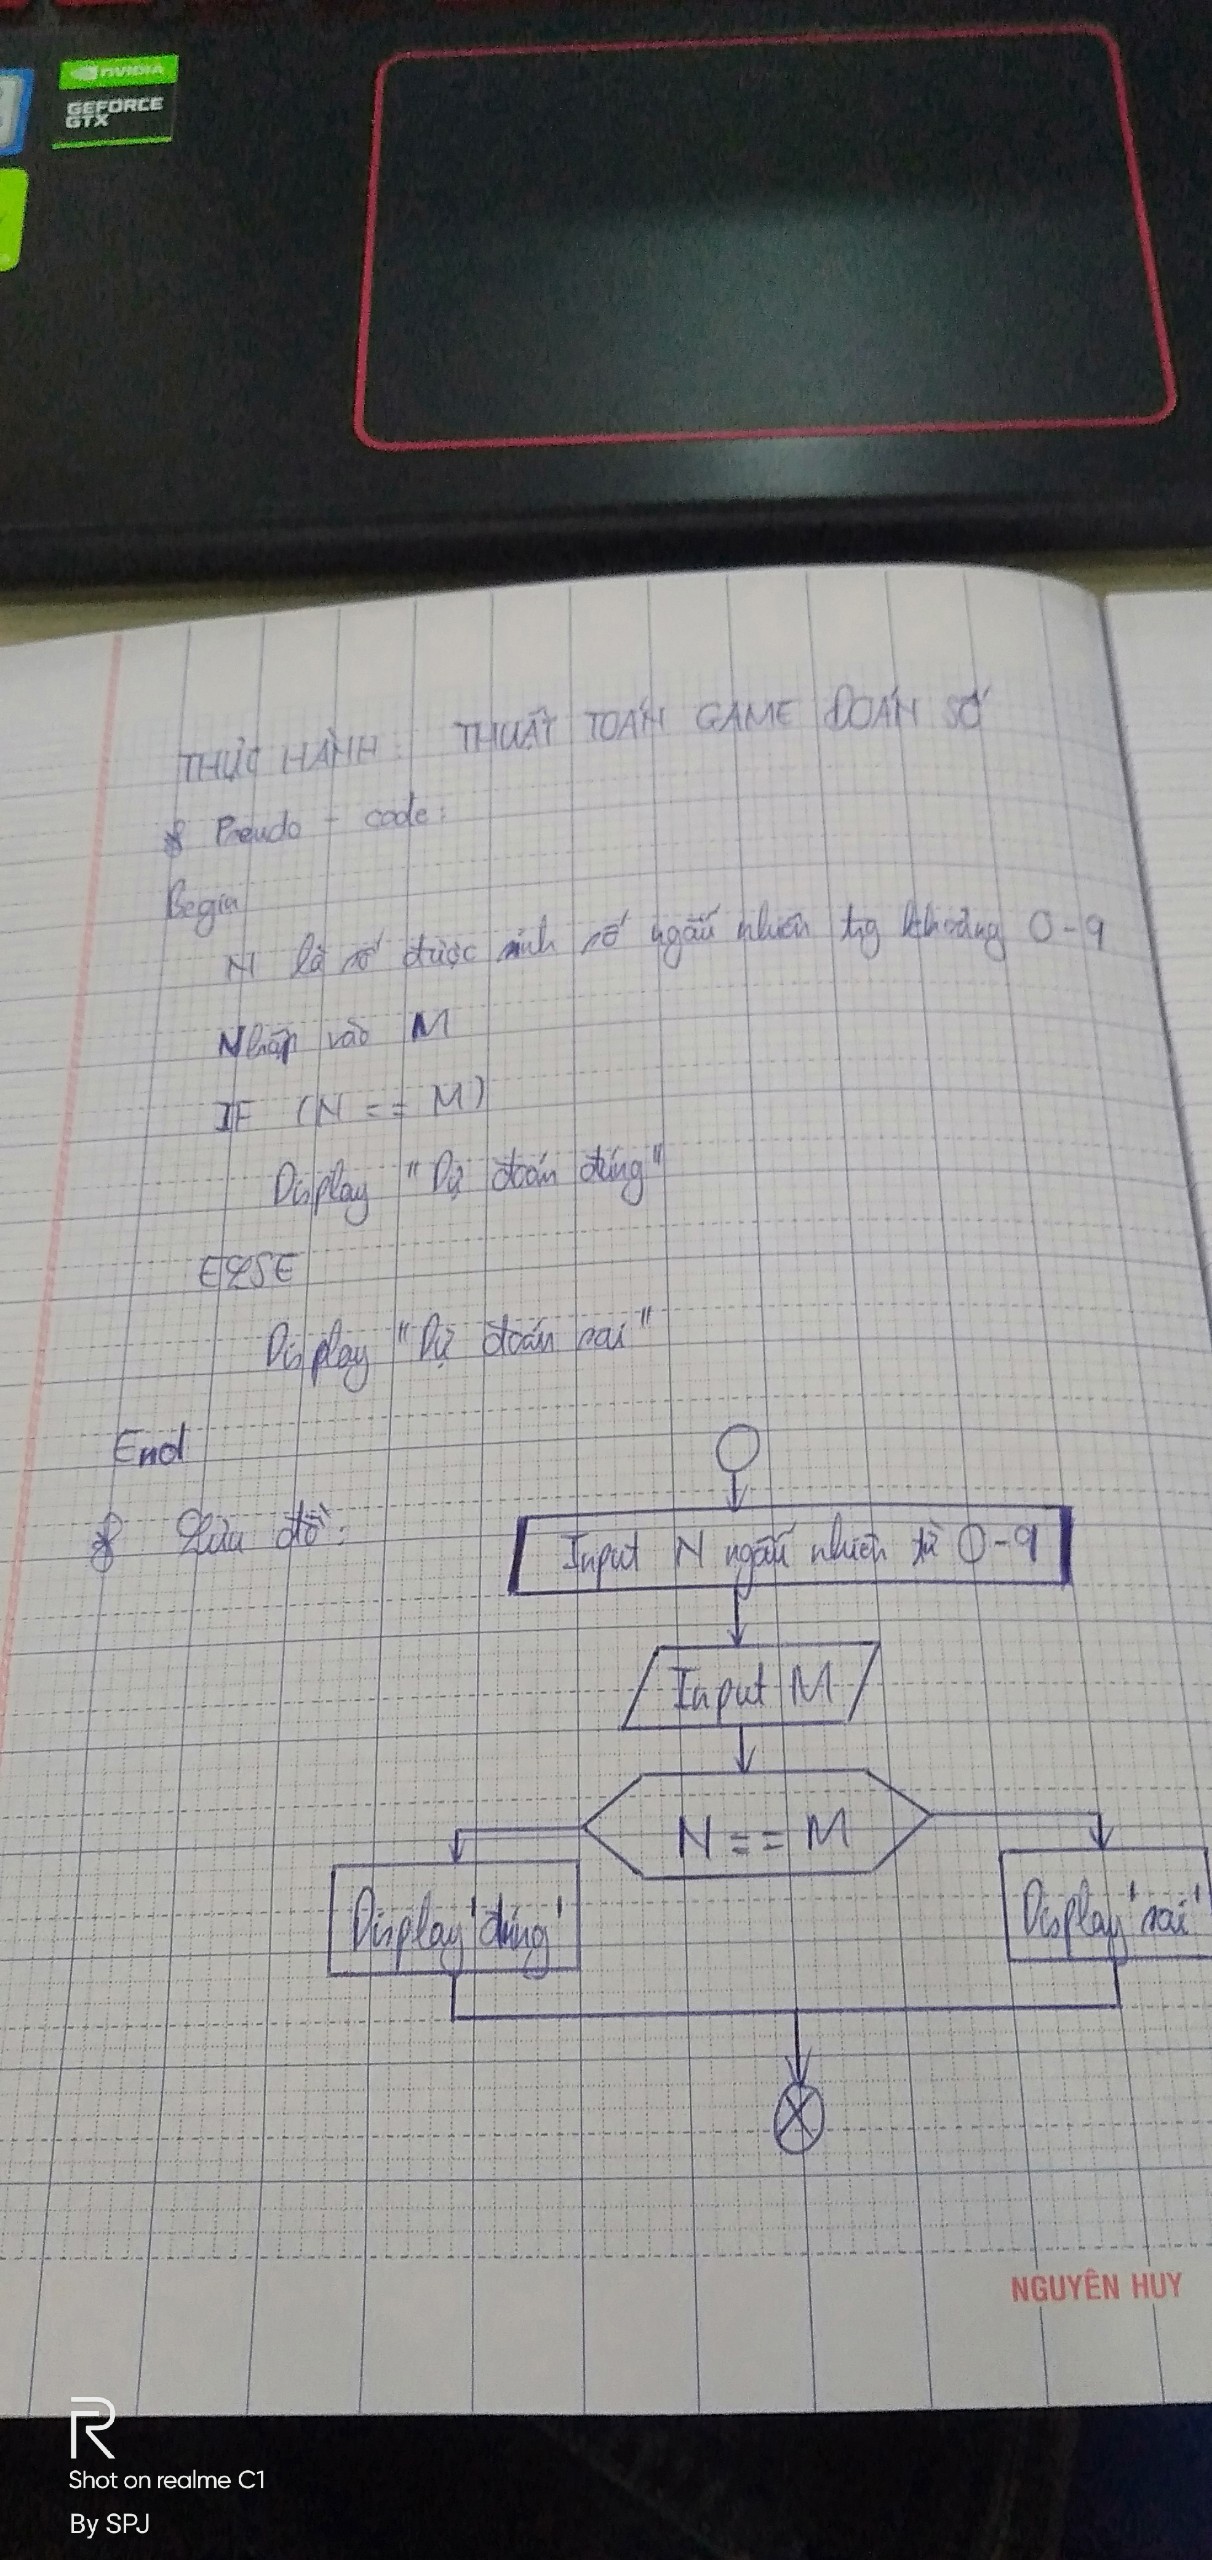 NVIDIA
GEFORCE
GTX
THỰC HÀNH: THUẬT TOÁN GAME ĐOÁN SỐ
* Pseudo - code:
Begin
N là số được sinh số ngẫu nhiên trg khoảng 0-9
Nhập vào M
IF (N == M)
Display "Dự đoán đúng"
ELSE
Display "Dự đoán sai"
End
* Lưu đồ:
Input N ngẫu nhiên từ 0-9
Input M
N == M
Display 'đúng'
Display 'sai'
NGUYÊN HUY
R
Shot on realme C1
By SPJ